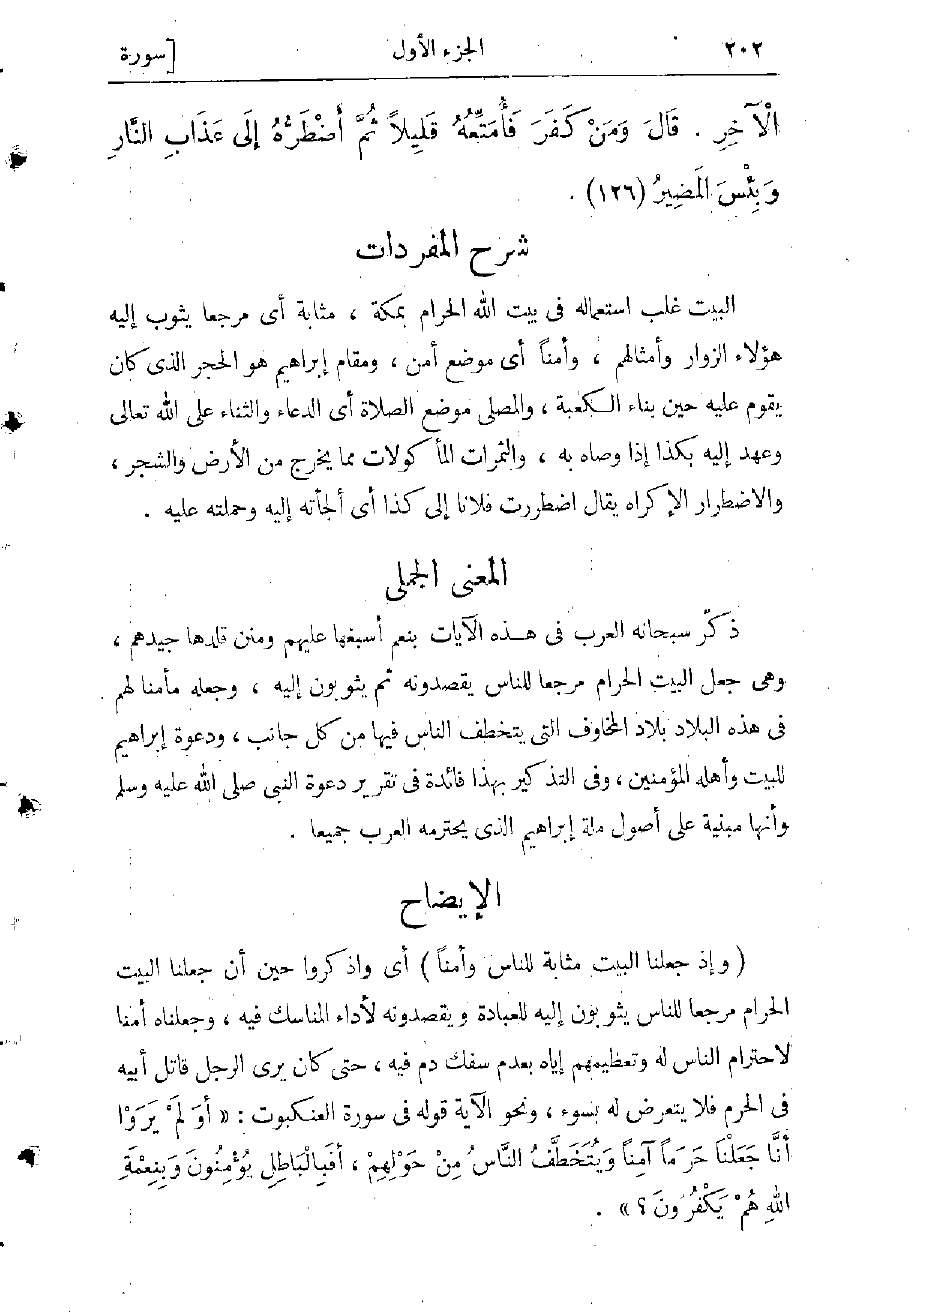 ٢٠٢ الجزء الأول [سورة
الْآخِرِ . قَالَ وَمَنْ كَفَرَ فَأُمَتِّعُهُ قَلِيلاً ثُمَّ أَضْطَرُّهُ إِلَى عَذَابِ النَّارِ
وَبِئْسَ الْمَصِيرُ (١٢٦) .
شرح المفردات
البيت غلب استعماله فى بيت الله الحرام بمكة ، مثابة أى مرجعا يثوب إليه
هؤلاء الزوار وأمثالهم ، وأمناً أى موضع أمن ، ومقام إبراهيم هو الحجر الذى كان
يقوم عليه حين بناء الكعبة ، والمصلى موضع الصلاة أى الدعاء والثناء على الله تعالى
وعهد إليه بكذا إذا وصاه به ، والثمرات المأكولات مما يخرج من الأرض والشجر ،
والاضطرار الإكراه يقال اضطررت فلانا إلى كذا أى ألجأته إليه وحملته عليه .
المعنى الجملى
ذكّر سبحانه العرب فى هذه الآيات بنعم أسبغها عليهم ومنن قلدها جيدهم ،
وهى جعل البيت الحرام مرجعا للناس يقصدونه ثم يثوبون إليه ، وجعله مأمنا لهم
فى هذه البلاد بلاد المخاوف التى يتخطف الناس فيها من كل جانب ، ودعوة إبراهيم
للبيت وأهله المؤمنين ، وفى التذكير بهذا فائدة فى تقرير دعوة النبى صلى الله عليه وسلم
وأنها مبنية على أصول ملة إبراهيم الذى يحترمه العرب جميعا .
الإيضاح
( وإذ جعلنا البيت مثابة للناس وأمناً ) أى واذكروا حين أن جعلنا البيت
الحرام مرجعا للناس يثوبون إليه للعبادة ويقصدونه لأداء المناسك فيه ، وجعلناه أمنا
لاحترام الناس له وتعظيمهم إياه بعدم سفك دم فيه ، حتى كان يرى الرجل قاتل أبيه
فى الحرم فلا يتعرض له بسوء ، ونحو الآية قوله فى سورة العنكبوت : « أَوَ لَمْ يَرَوْا
أَنَّا جَعَلْنَا حَرَماً آمِناً وَيُتَخَطَّفُ النَّاسُ مِنْ حَوْلِهِمْ ، أَفَبِالْبَاطِلِ يُؤْمِنُونَ وَبِنِعْمَةِ
اللهِ هُمْ يَكْفُرُونَ ؟ » .